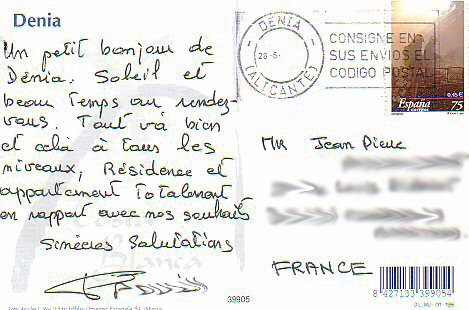 Denia
Un petit bonjour de
Dénia. Soleil et
beau temps au rendez-
vous Tout va bien
et celà à tous les
niveaux, Résidence et
appartement Totalement
en rapport avec nos souhaits
Sincères Salutations
DENIA
28-6-
(ALICANTE)
CONSIGNE EN
SUS ENVIOS EL
CODIGO POSTAL
0,45 €
España
correos
75
MR Jean Pierre
FRANCE
39905
8 427133 399054